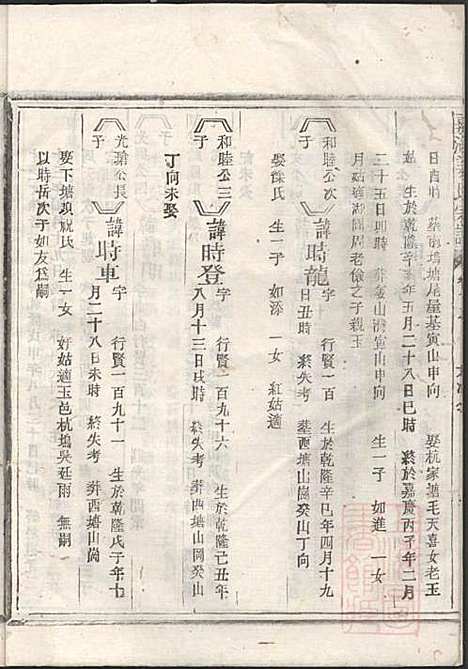 日酉時 墓南塢塘尾屋基寅山申向 娶杭家塘毛天喜女老玉
姑 生於乾隆辛亥年五月二十八日巳時 終於嘉慶丙子年二月
二十五日卯時 葬金山灣寅山申向 生一子 如進 一女
月姑適湖圓周老儉之子親玉
和睦公次子 諱時龍 字 行賢一百九十五 生於乾隆辛巳年四月十九
日丑時 終失考 墓西塘山崗癸山丁向
娶徐氏 生一子 如添 一女 紅姑適
和睦公三子 諱時登 字 行賢一百九十六 生於乾隆己丑年
八月十三日戌時 終失考 葬西塘山崗癸山
丁向未娶
光瑜公長子 諱時車 字 行賢一百九十一 生於乾隆戊子年七
月二十八日未時 終失考 葬西塘山崗
娶下塘塢祝氏 生一女 好姑適玉邑杭塢吳廷雨 無嗣
以時岳次子如友爲嗣